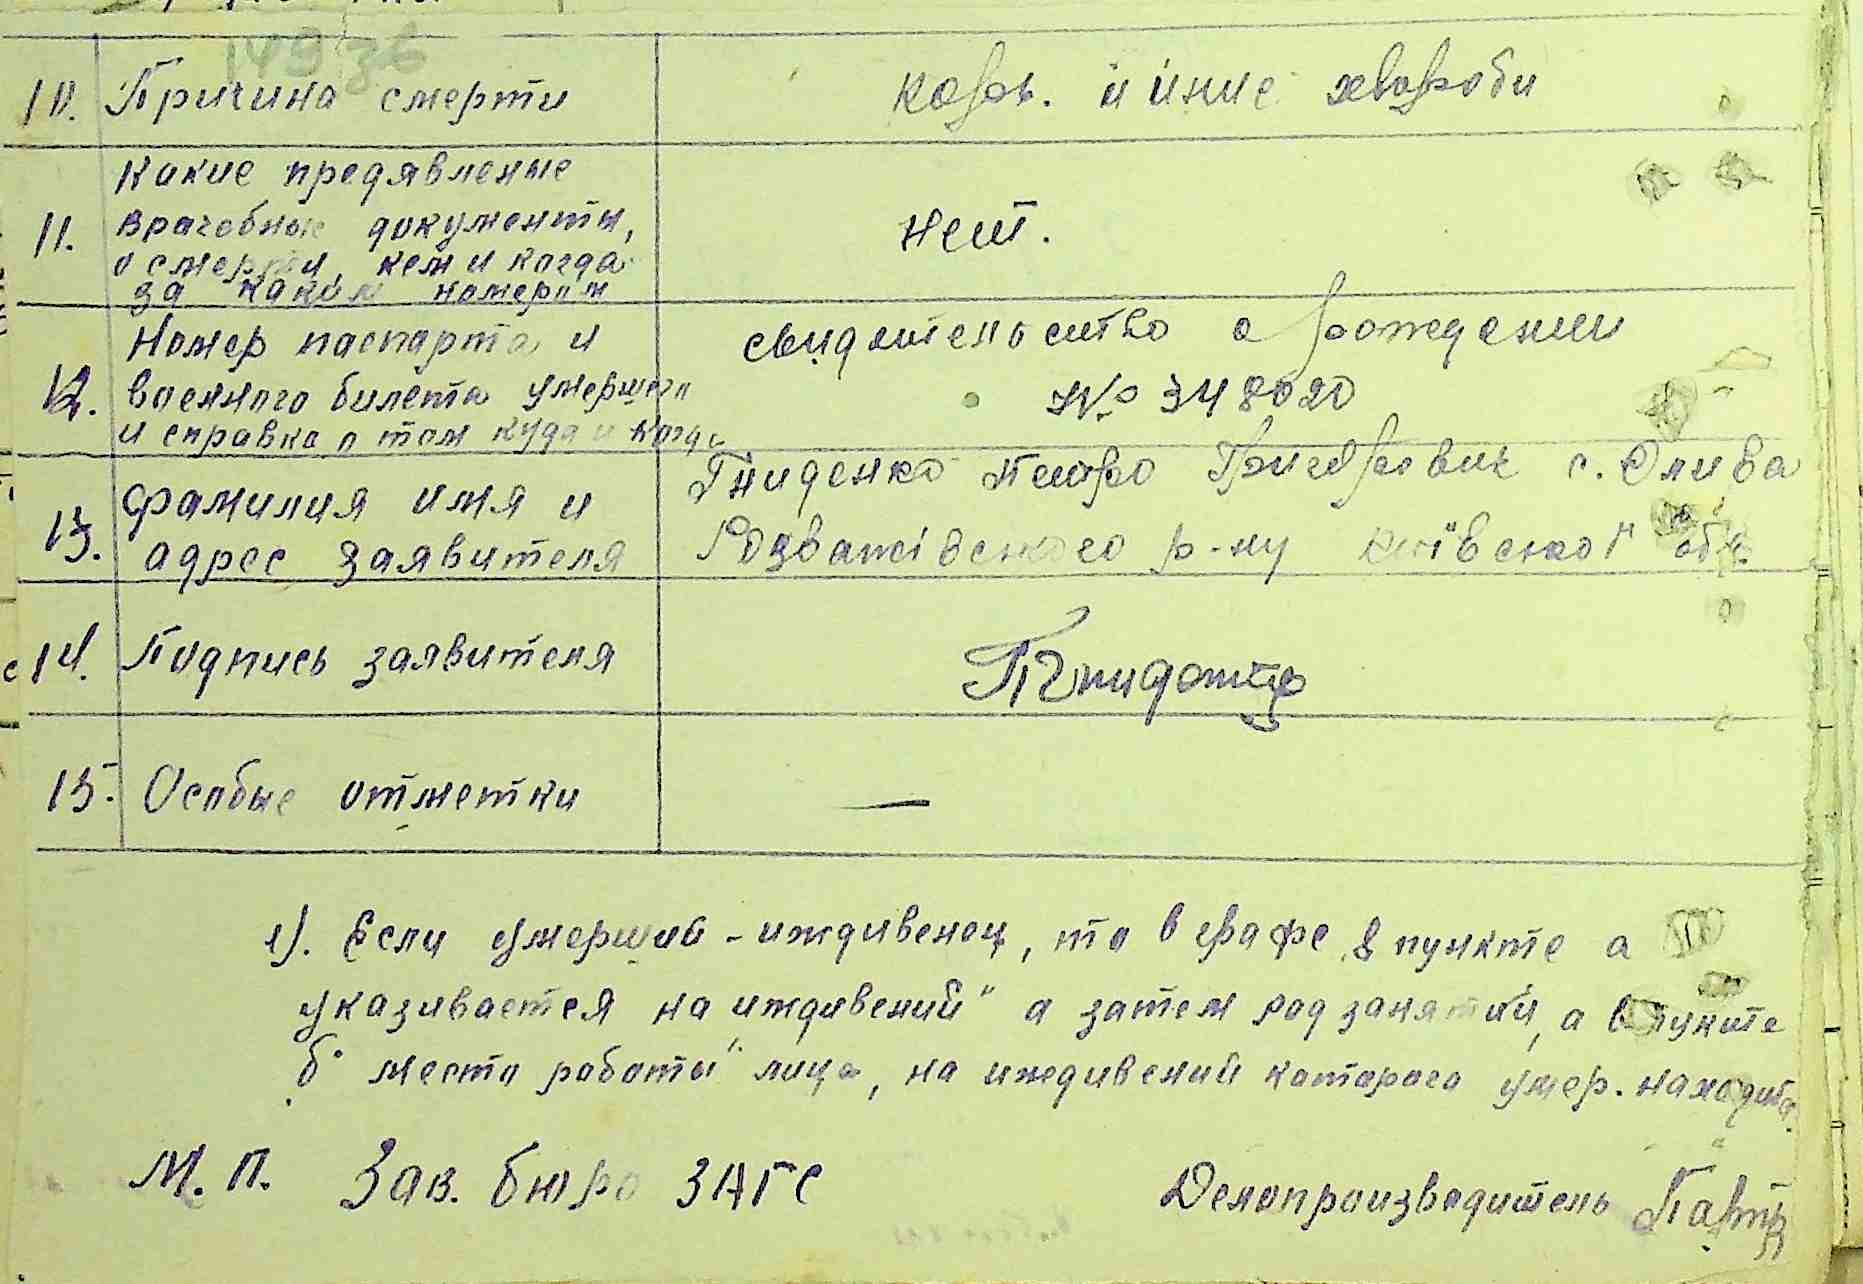 149 36
10. Причина смерти
й инше хвороби
Какие предявленые
11. врачебные документы,
нет.
о смерти, кем и когда
за каким номером
Номер паспорта и
свидетельство о рождении
12. военного билета умершего
№ 348020
и справка о том куда и когда
Гниденко Петро Григорович с. Олива
13. Фамилия имя и
адрес заявителя
Розважівского р-ну Київской обл.
14. Подпись заявителя
15. Особые отметки
—
1). Если умерший - иждивенец, то в графе 8 пункте а
указивается на иждивений" а затем род занятий, а в пункте
б" место работы" лица, на иждивений которого умер. находился
М. П. Зав. бюро ЗАГС
Делопроизводитель